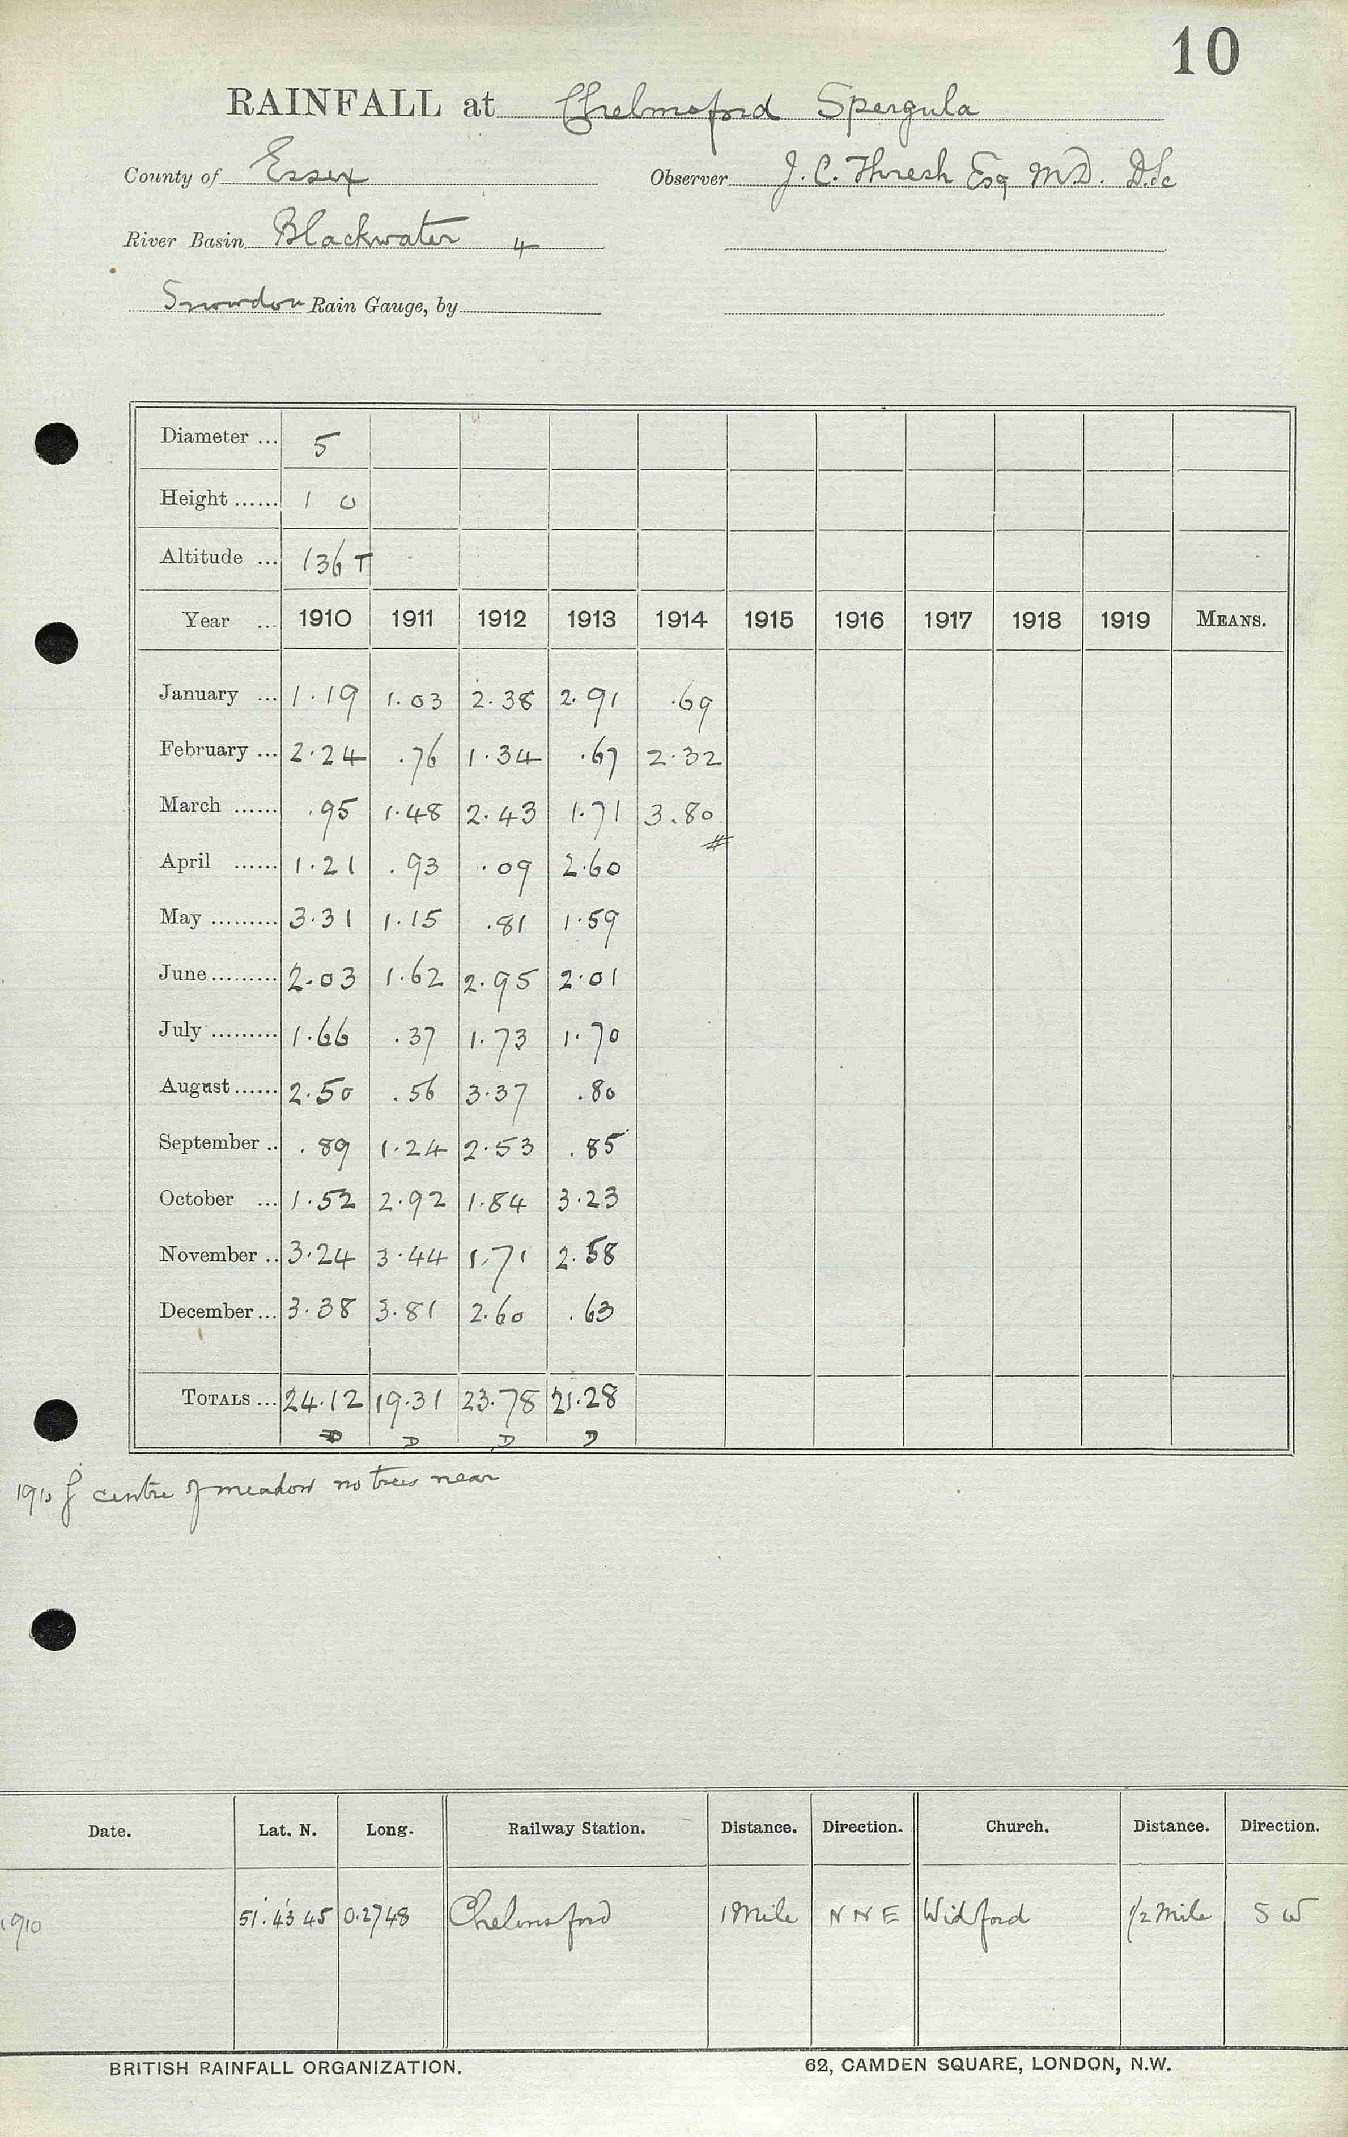 10
RAINFALL at Chelmsford Spergula
County of Essex Observer J. C. Thresh Esq M.D. D.Sc
River Basin Blackwater 4
Snowdon Rain Gauge, by
Diameter ... 5
Height ...... 1 0
Altitude ... 136 T
Year ... 1910 1911 1912 1913 1914 1915 1916 1917 1918 1919 MEANS.
January ... 1.19 1.03 2.38 2.91 .69
February ... 2.24 .76 1.34 .67 2.32
March ...... .95 1.48 2.43 1.71 3.80
April ...... 1.21 .93 .09 2.60 #
May ......... 3.31 1.15 .81 1.59
June ......... 2.03 1.62 2.95 2.01
July ......... 1.66 .37 1.73 1.70
August ...... 2.50 .56 3.37 .80
September .. .89 1.24 2.53 .85
October ... 1.52 2.92 1.84 3.23
November .. 3.24 3.44 1.71 2.58
December ... 3.38 3.81 2.60 .63
TOTALS ... 24.12 19.31 23.78 21.28
D D D D
1910 centre of meadow no trees near
Date. Lat. N. Long. Railway Station. Distance. Direction. Church. Distance. Direction.
1910 51.43 45 0.27 48 Chelmsford 1 Mile N N E Widford 1/2 Mile S W
BRITISH RAINFALL ORGANIZATION. 62, CAMDEN SQUARE, LONDON, N.W.